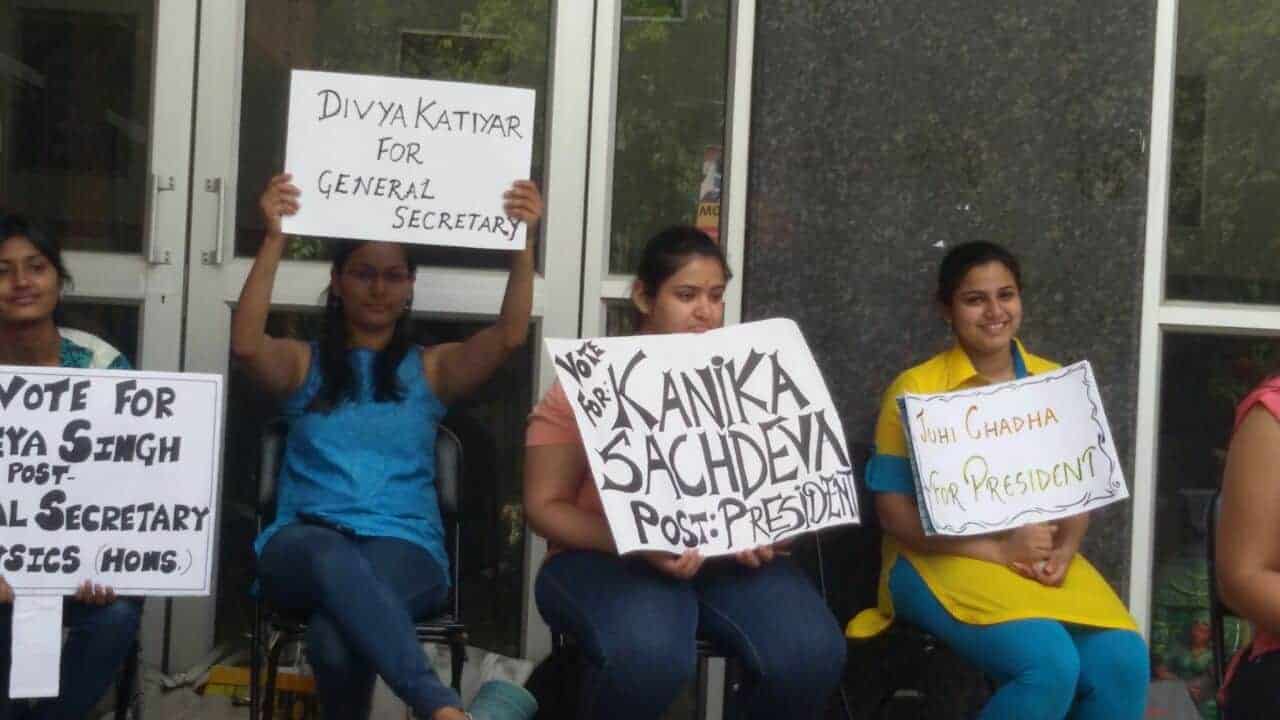 VOTE FOR
EYA SINGH
POST-
AL SECRETARY
SICS (HONS.)
DIVYA KATIYAR
FOR
GENERAL
SECRETARY
VOTE
FOR:
KANIKA
SACHDEVA
POST: PRESIDENT
JUHI CHADHA
FOR PRESIDENT
MO